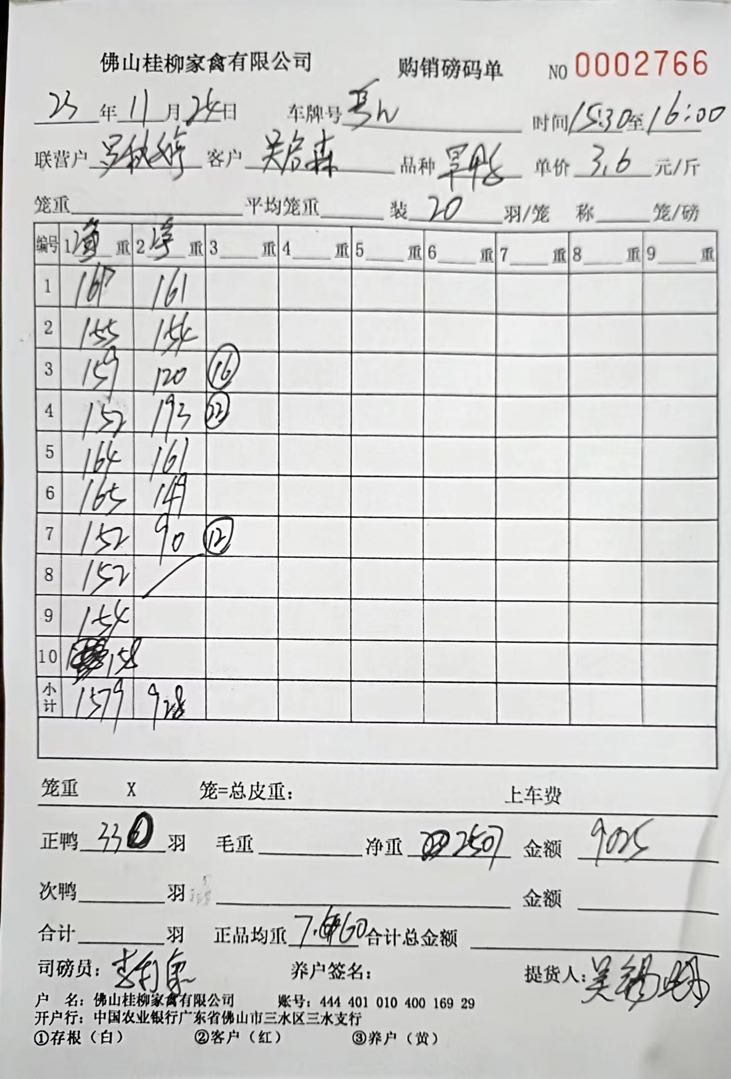 佛山桂柳家禽有限公司 购销磅码单 NO 0002766
23 年 11 月 24 日 车牌号 时间 15:30 至 16:00
联营户 客户 吴启森 品种 旱鸭 单价 3.6 元/斤
笼重 平均笼重 装 20 羽/笼 称 笼/磅
编号 1 净 重 2 净 重 3 重 4 重 5 重 6 重 7 重 8 重 9 重
1 167 161
2 155 154
3 159 120 16
4 152 193 22
5 164 161
6 165 149
7 152 90 12
8 152
9 154
10 158
小计 1579 928
笼重 X 笼=总皮重： 上车费
正鸭 330 羽 毛重 净重 2507 金额 9025
次鸭 羽 金额
合计 羽 正品均重 7.60 合计总金额
司磅员： 养户签名： 提货人：吴
户 名：佛山桂柳家禽有限公司 账号：444 401 010 400 169 29
开户行：中国农业银行广东省佛山市三水区三水支行
①存根（白） ②客户（红） ③养户（黄）